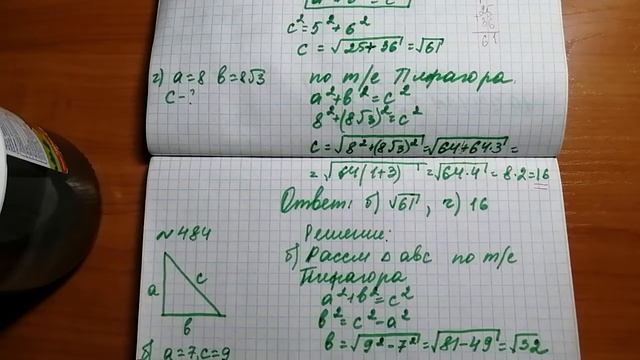 c²=5²+6²
c=√25+36=√61
25
36
61
г) a=8 b=8√3
c-?
по т/е Пифагора
a²+b²=c²
8²+(8√3)²=c²
c=√8²+(8√3)²=√64+64·3=
=√84(1+3)=√64·4=8·2=16
Ответ: б) √61, г) 16
№484
Решение:
б) Рассм △ abc по т/е
Пифагора
a²+b²=c²
b²=c²-a²
b=√9²-7²=√81-49=√32
a
c
b
б) a=7, c=9